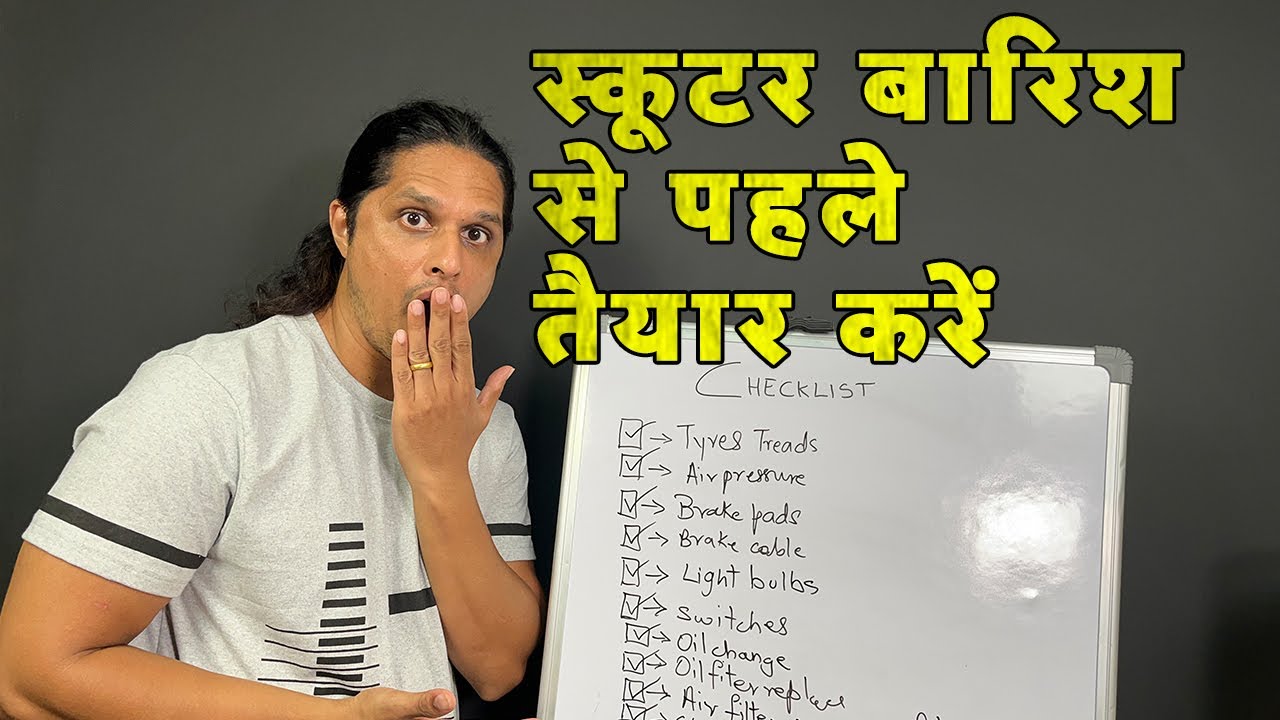 स्कूटर बारिश
से पहले
तैयार करें
CHECKLIST
Tyres Treads
Air pressure
Brake pads
Brake cable
Light bulbs
Switches
Oil change
Oil fiter replace
Air filter